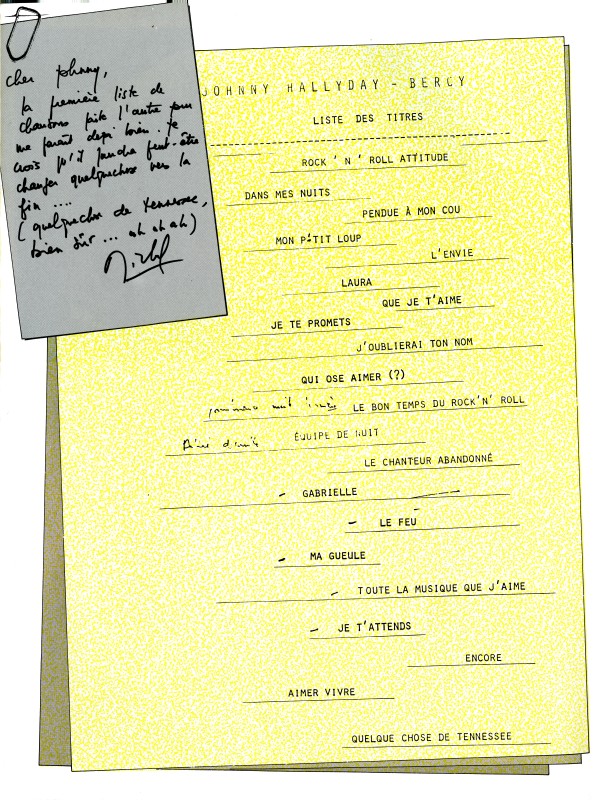 cher Johnny,
la première liste de
chansons faite l'autre jour
me paraît déjà bien. Je
crois qu'il faudra peut-être
changer quelquechose vers la
fin ....
(quelquechose de Tennessee,
bien sûr ... ah ah ah)
JOHNNY HALLYDAY - BERCY
LISTE DES TITRES
ROCK 'N' ROLL ATTITUDE
DANS MES NUITS
PENDUE À MON COU
MON P'TIT LOUP
L'ENVIE
LAURA
QUE JE T'AIME
JE TE PROMETS
J'OUBLIERAI TON NOM
QUI OSE AIMER (?)
LE BON TEMPS DU ROCK'N' ROLL
ÉQUIPE DE NUIT
LE CHANTEUR ABANDONNÉ
- GABRIELLE
- LE FEU
- MA GUEULE
- TOUTE LA MUSIQUE QUE J'AIME
- JE T'ATTENDS
ENCORE
AIMER VIVRE
QUELQUE CHOSE DE TENNESSEE